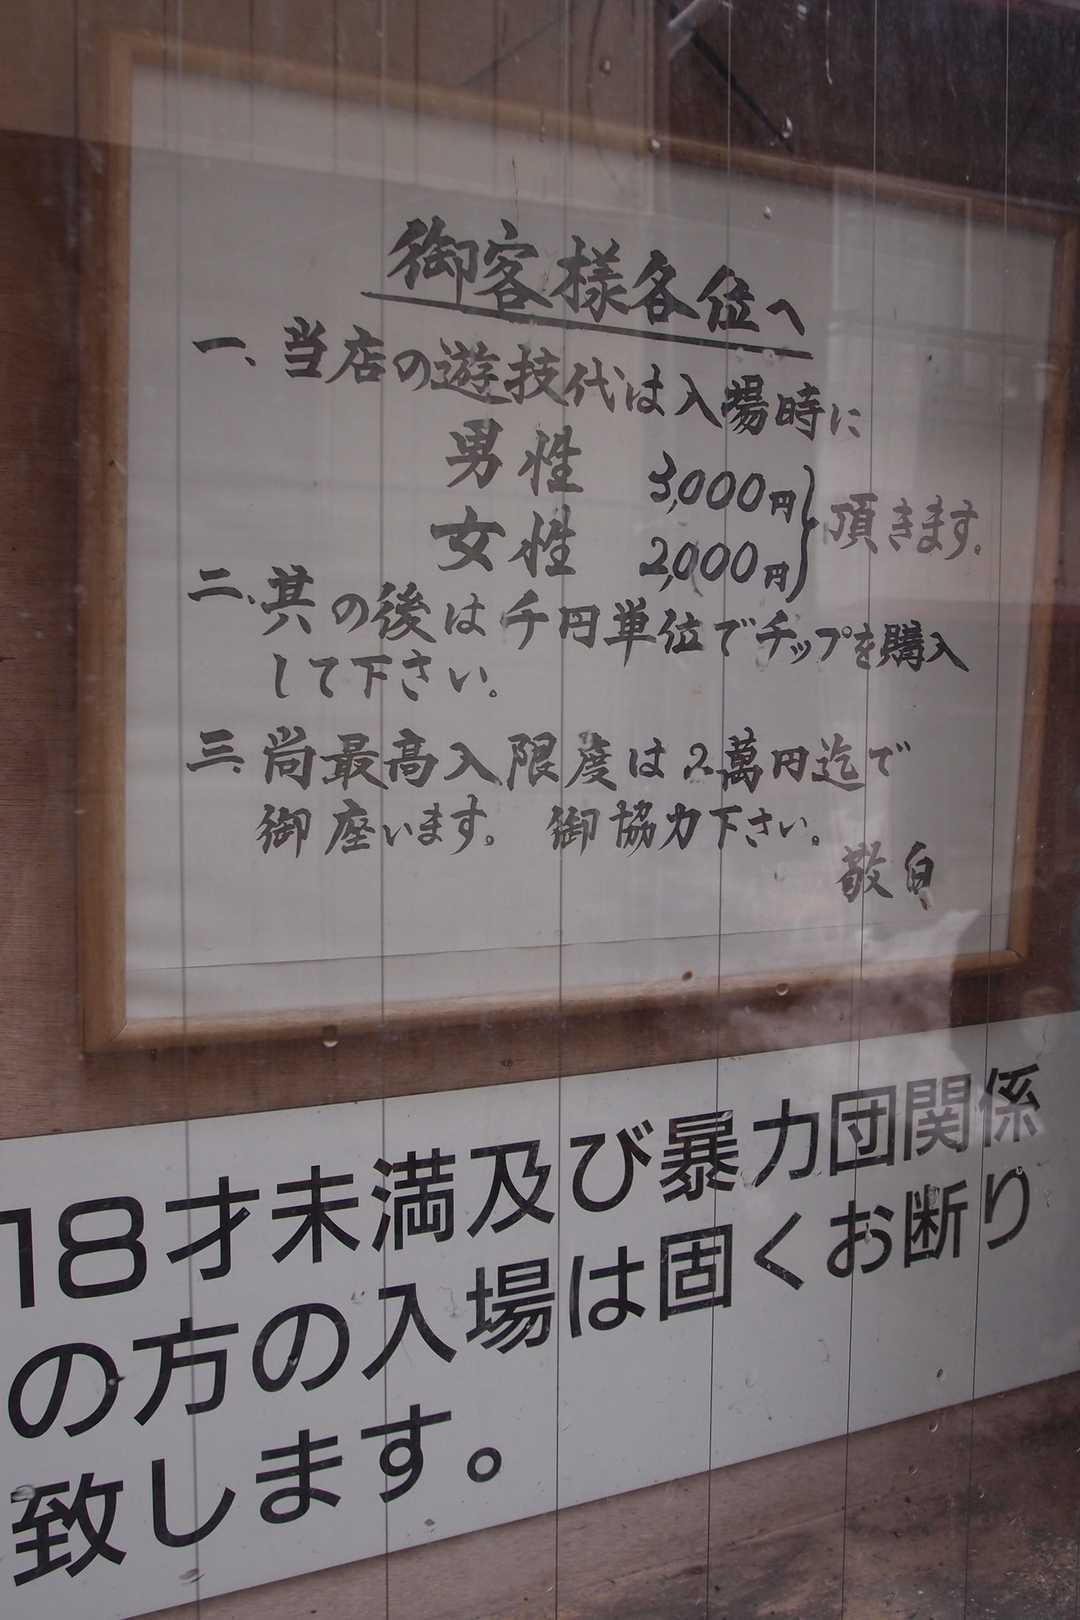 御客様各位へ
一、当店の遊技代は入場時に
男性 3,000円
女性 2,000円
頂きます。
二、其の後は千円単位でチップを購入
して下さい。
三、尚最高入限度は2萬円迄で
御座います。 御協力下さい。
敬白
18才未満及び暴力団関係
の方の入場は固くお断り
致します。